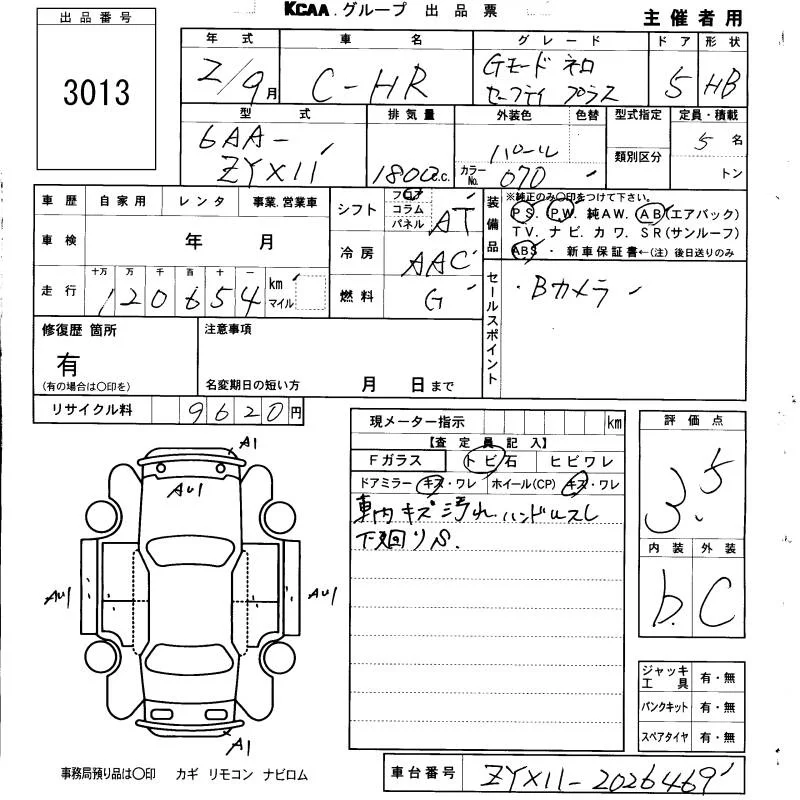 KCAA.グループ 出品票
主催者用
出品番号
3013
年式 車名 グレード ドア 形状
2/9月 C-HR Gモード ネロ セーフティ プラス 5 HB
型式 排気量 外装色 色替 型式指定 定員・積載
6AA-
ZYX11 1800c.c. パール カラーNo. 070 類別区分 5名
トン
車歴 自家用 レンタ 事業.営業車
車検 年 月
走行 十万 万 千 百 十 一
120654 km マイル
シフト フロア コラム パネル AT
冷房 AAC
燃料 G
装備品 ※純正のみ〇印をつけて下さい。
PS. PW. 純AW. AB(エアバック)
TV. ナビ. カワ. SR(サンルーフ)
ABS ・ 新車保証書←(注) 後日送りのみ
セールスポイント
・Bカメラ
修復歴 箇所 注意事項
有
(有の場合は〇印を) 名変期日の短い方 月 日まで
リサイクル料 9620円
現メーター指示 km
【査定員記入】
Fガラス トビ石 ヒビワレ
ドアミラー キズ・ワレ ホイール(CP) キズ・ワレ
車内キズ汚れ ハンドルスレ
下廻りS.
評価点
3.5
内装 外装
b. C
A1
AU1
AU1 AU1
A1
ジャッキ 工具 有・無
パンクキット 有・無
スペアタイヤ 有・無
事務局預り品は〇印 カギ リモコン ナビロム
車台番号 ZYX11-2026469